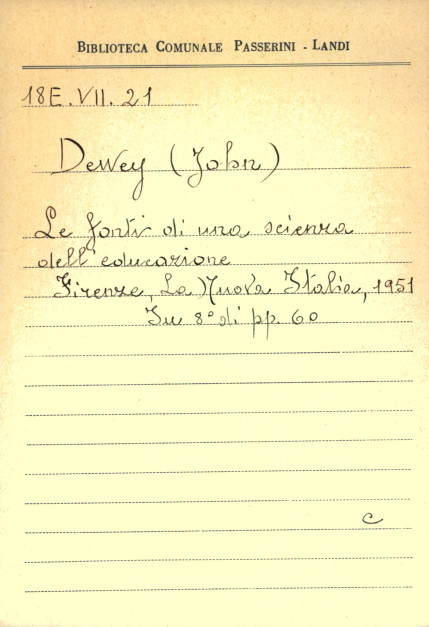 BIBLIOTECA COMUNALE PASSERINI - LANDI
18E.VII.21
Dewey (John)
Le fonti di una scienza
dell'educazione
Firenze, La Nuova Italia, 1951
In 8° di pp. 60
c